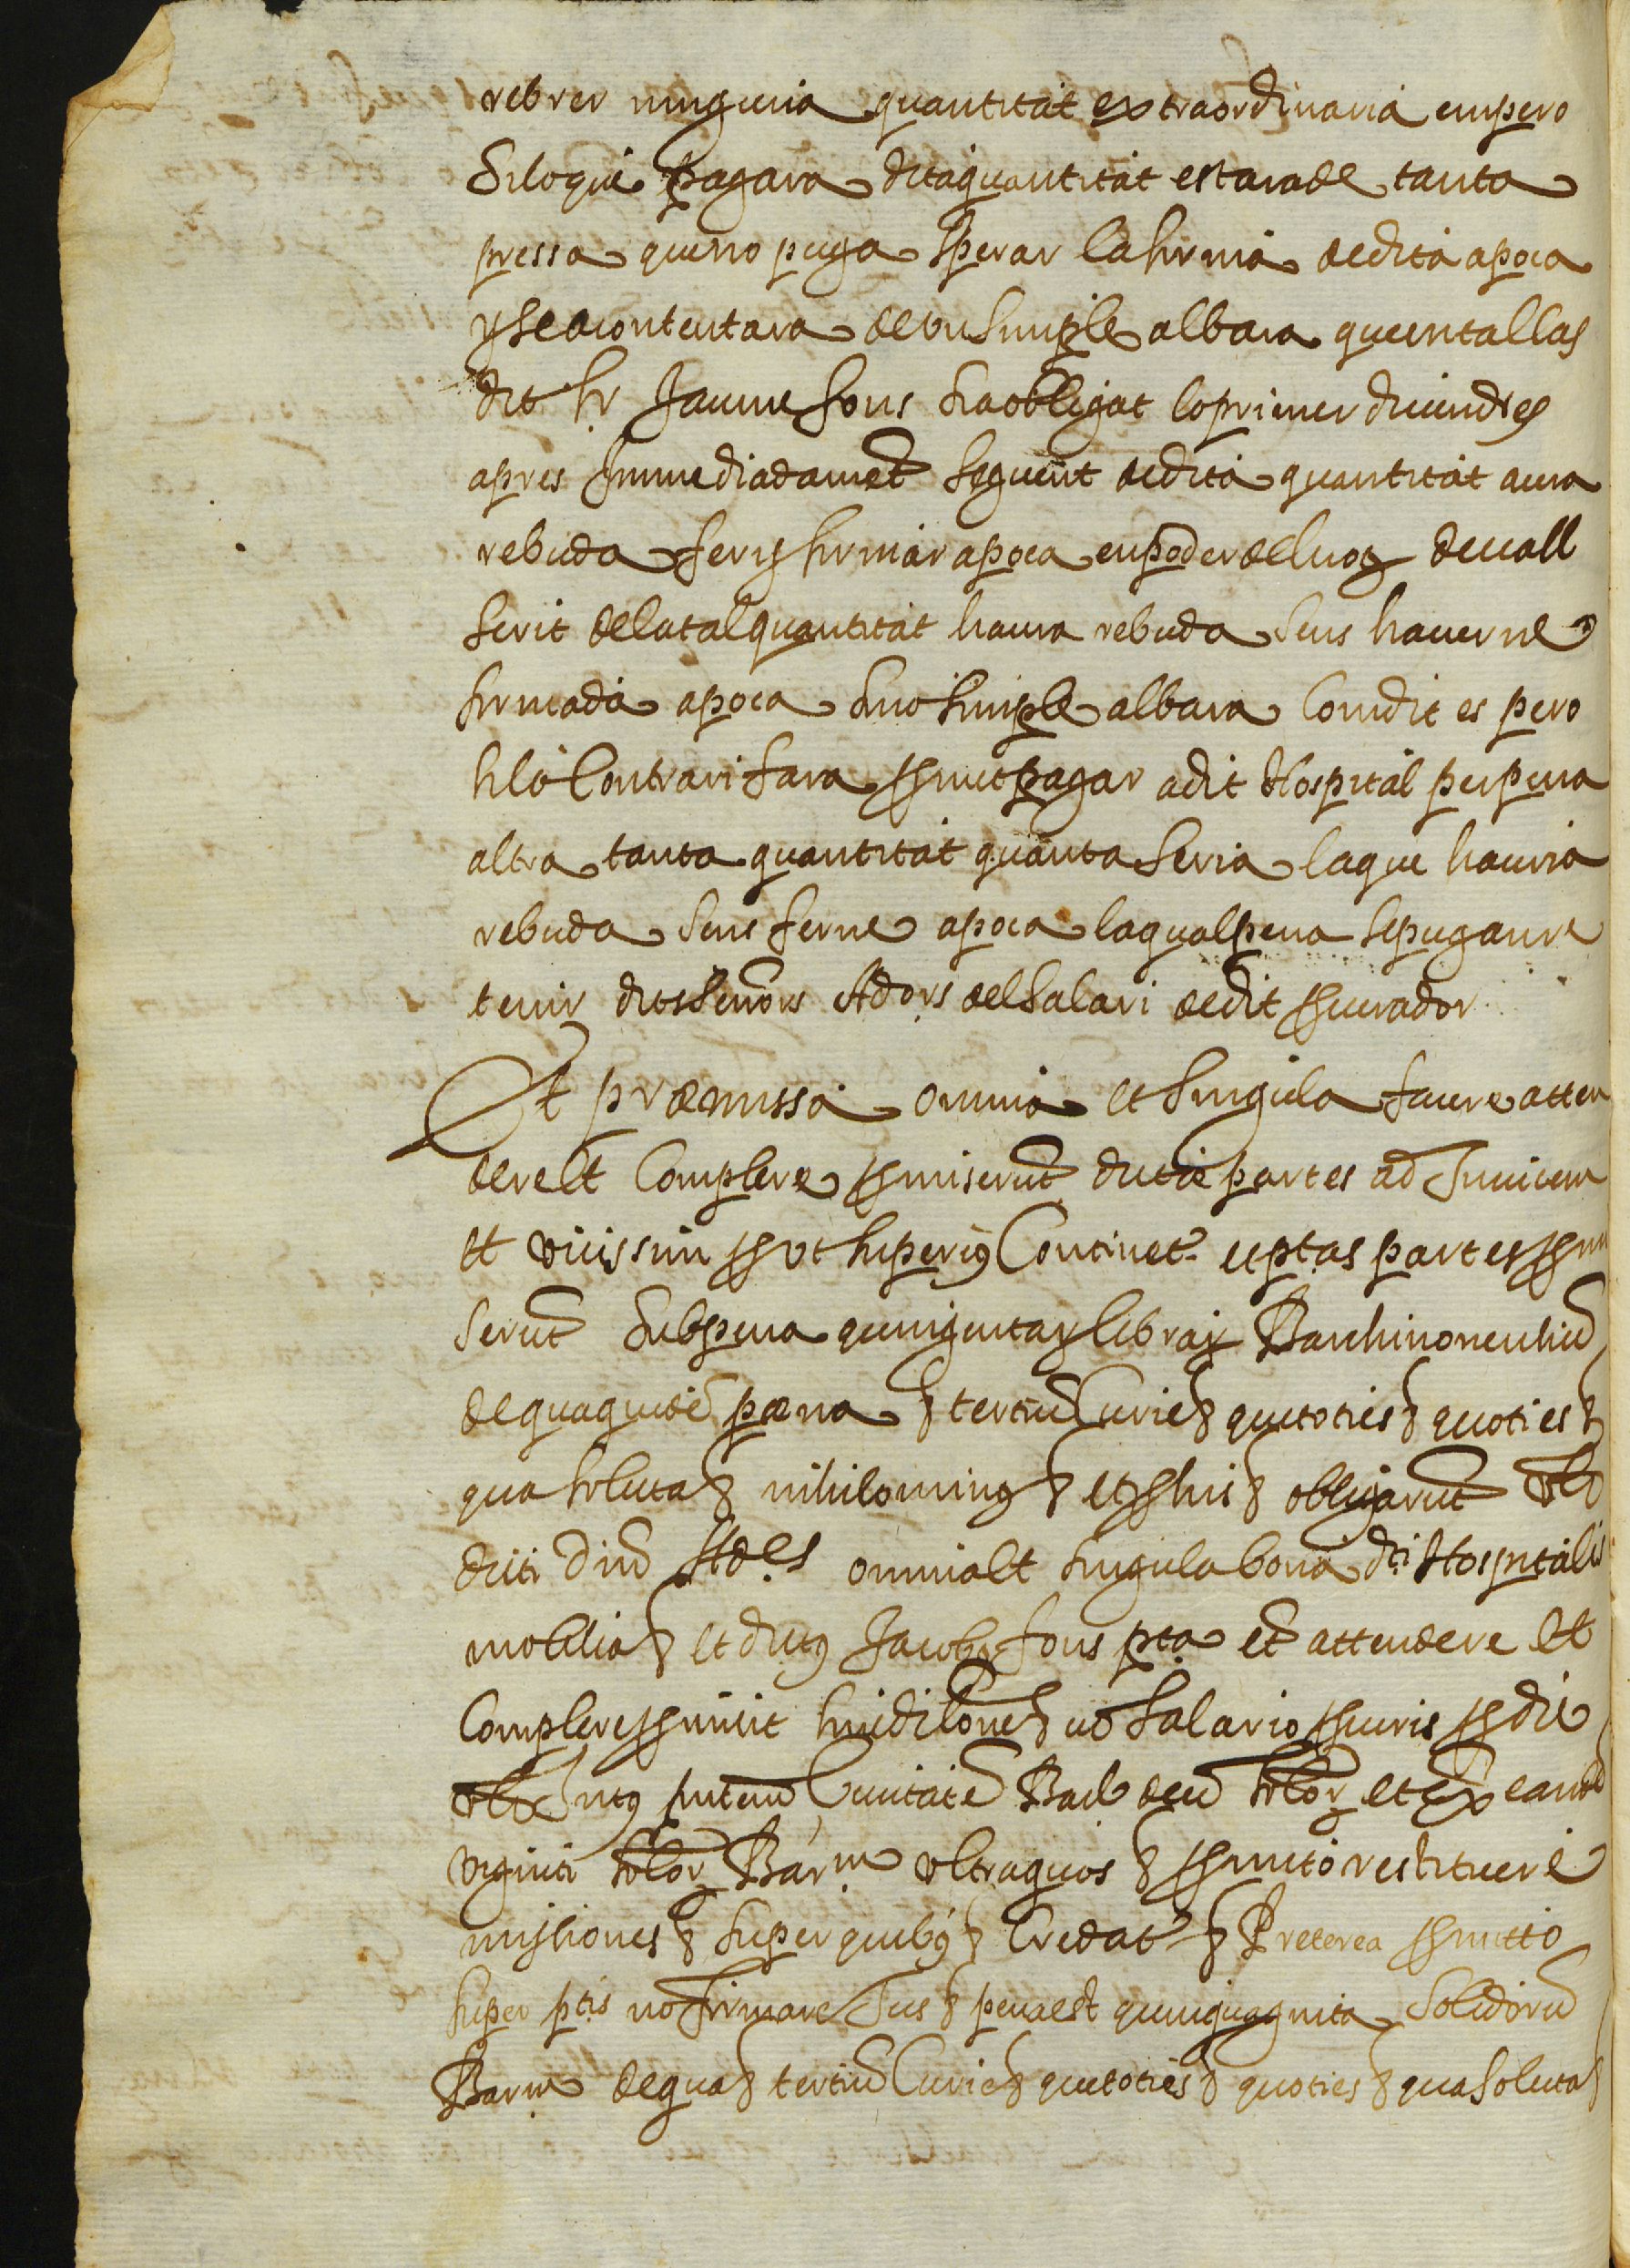 rebrer ninguna quantitat extraordinaria empero
si lo qui pagara dita quantitat estara de tanta
pressa que no puga sperar la firma de dita apoca
y se acontentara de un simple albara que en tal cas
dit Sr Jaume fons sia obligat lo primer diuendres
apres Immediadamēt seguent de dita quantitat aura
rebuda fer y firmar apoca en poder del not deuall
scrit de la tal quantitat haura rebuda sens hauerne
firmada apoca sino simple albara com dit es pero
si lo contrari fara promet pagar a dit Hospital per pena
altra tanta quantitat quanta seria la que hauria
rebuda sens ferne apoca la qual pena se pugan re
tenir dits senōrs Adors del salari de dit procurador
Et præmissa omnia et singula facere atten
dere et complere promiserūt dictæ partes ad Inuicem
et vicissim prout superiꝰ continet et ptas partes promi
serūt sub pena quingentaꝝ libraꝝ Barchinonensiū
de qua quidē pœna & tertiū Curie & que toties & quoties &
qua soluta & nihilominꝰ & et pro his & obligarūt
dicti Dnī Ad.es omnia et singula bona dti Hospitalis
mobilia & et dictꝰ Jacobꝰ fons pta et attendere et
complere promisit sine dilōne & cū salario procuris pro die
intꝰ pntem Ciuitatē Barḉ decē solꝝ et ex eand
viginti solꝝ Barm vltra quos & promitto restituere
missiones & super quibꝰ & Credat & Preterea promitto
super ptis no firmare Jus & pena est quinquaginta solidorū
Barm de qua & tertiū Curie & que toties & quoties & qua soluta &